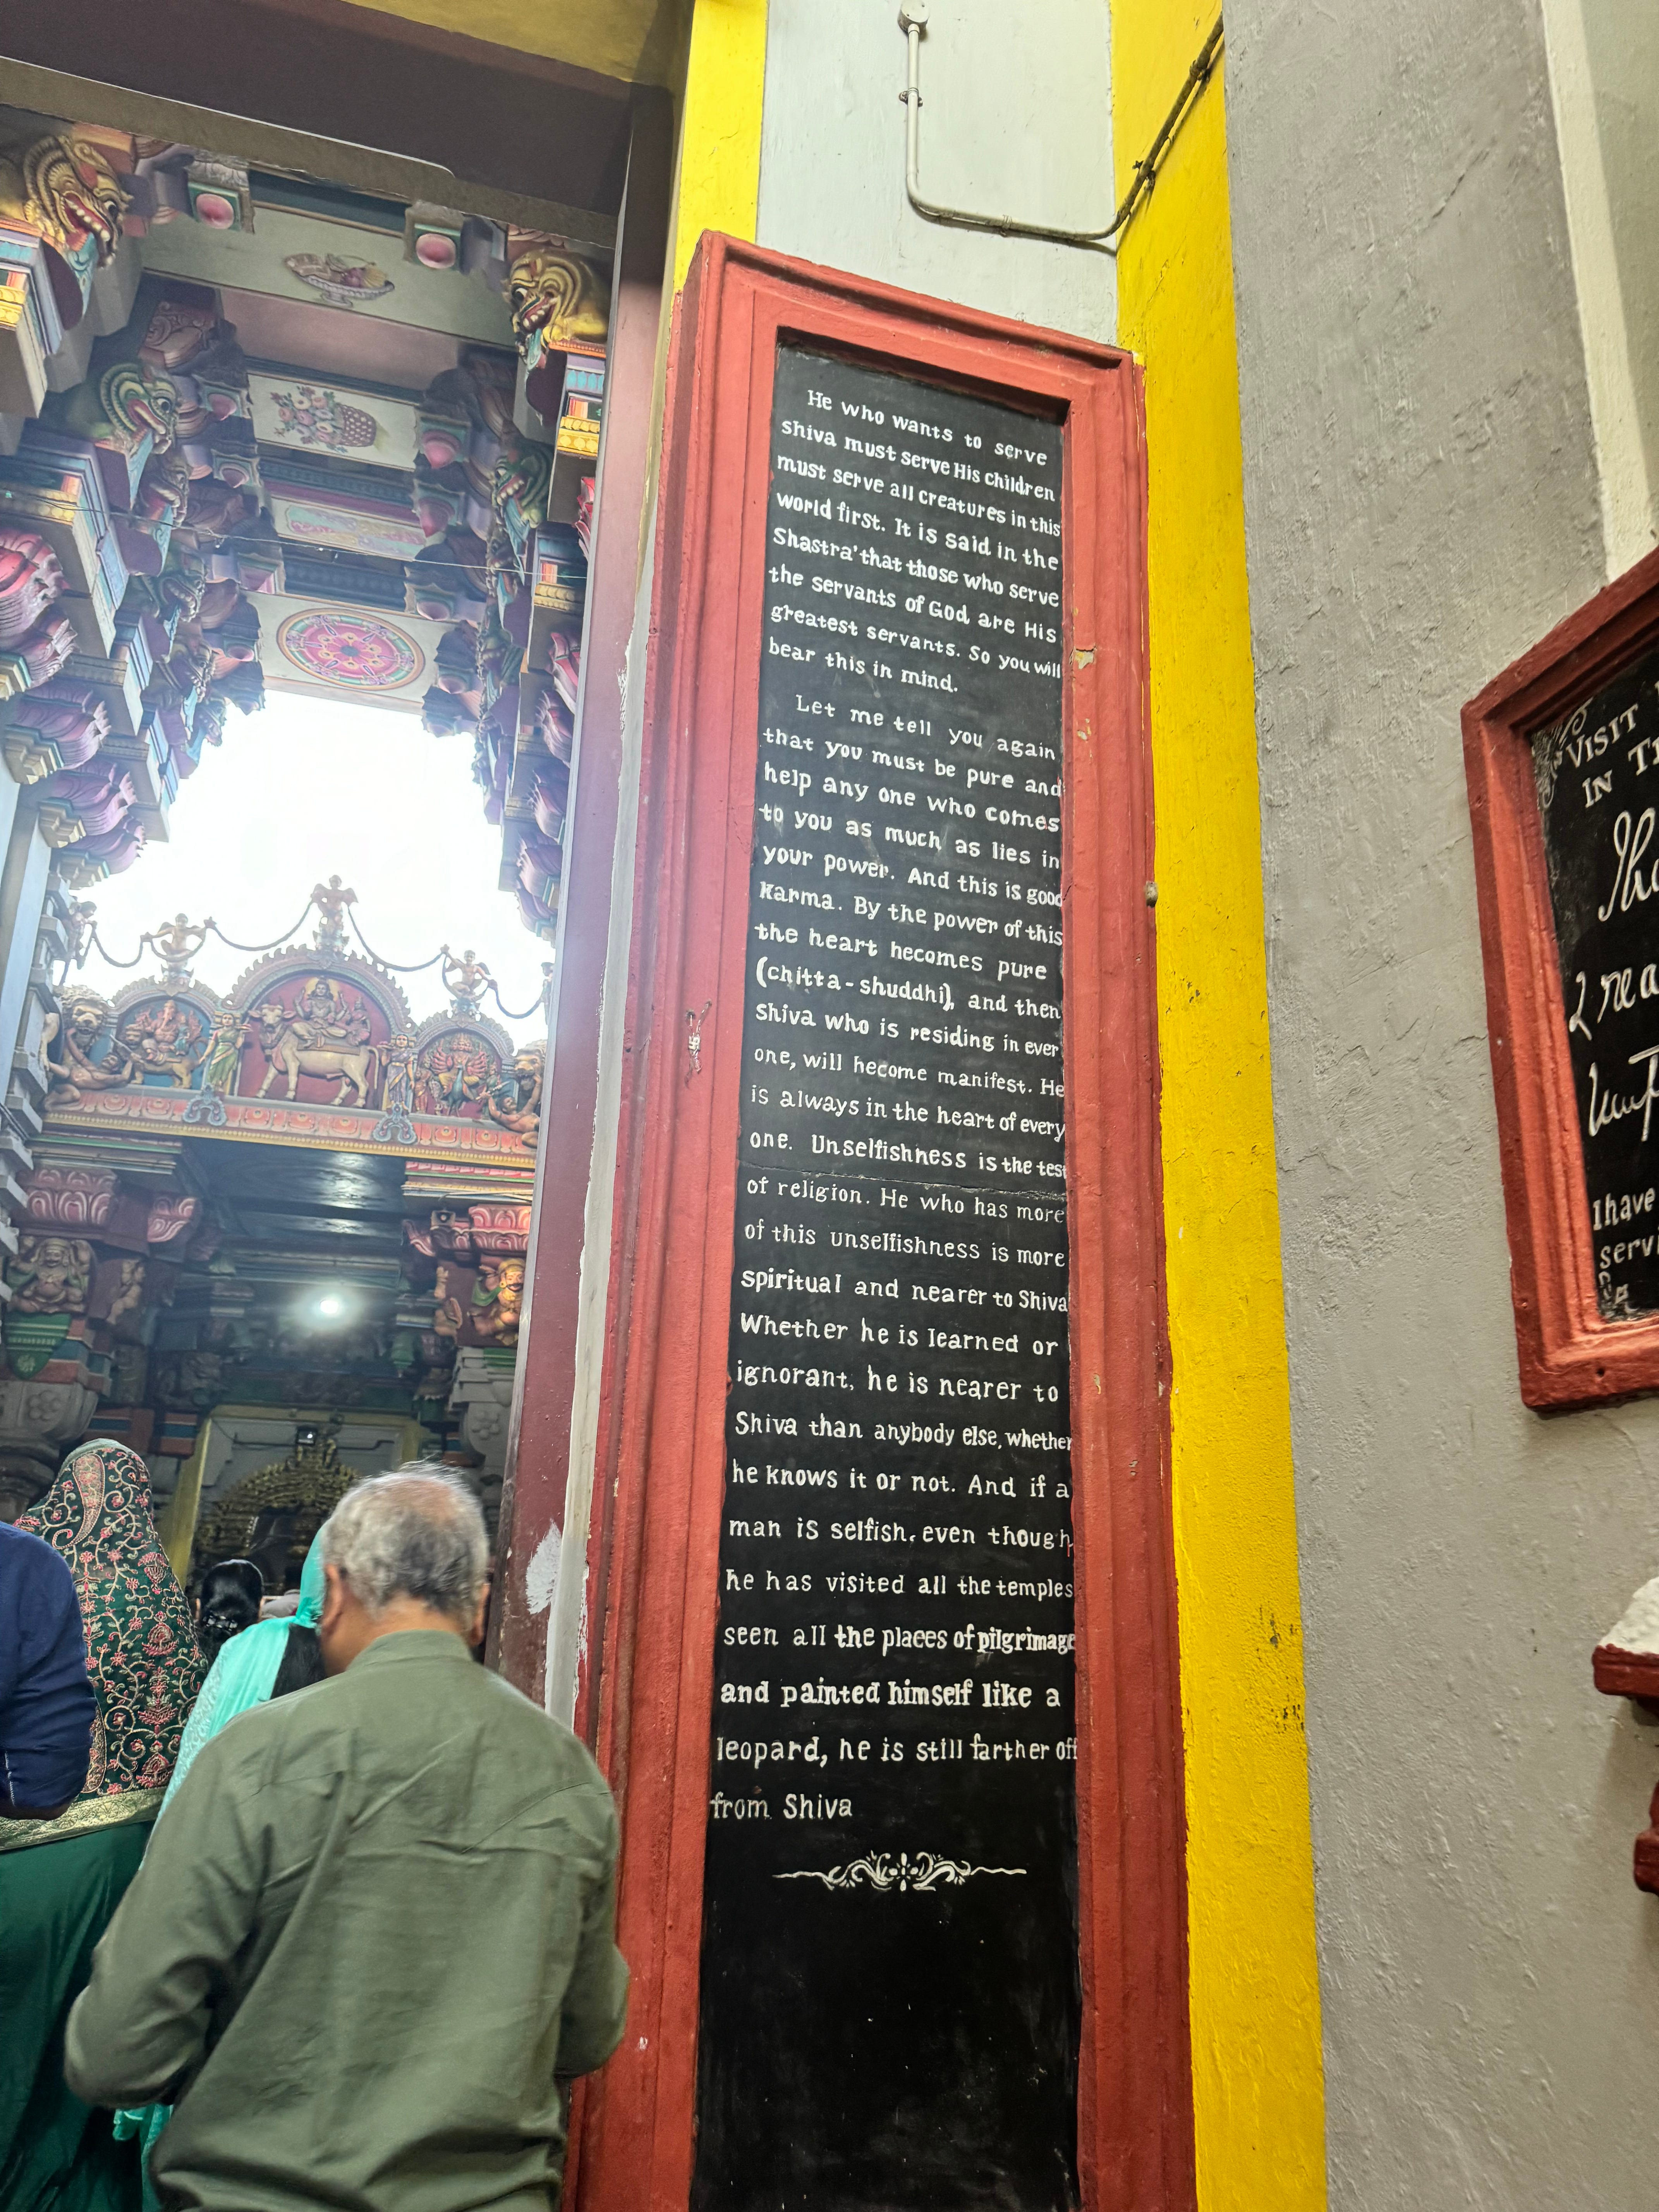 He who wants to serve
shiva must serve His children
must serve all creatures in this
world first. It is said in the
Shastra' that those who serve
the servants of God are His
greatest servants. So you will
bear this in mind.
Let me tell you again
that you must be pure and
help any one who comes
to you as much as lies in
your power. And this is good
Karma. By the power of this
the heart hecomes pure
(chitta-shuddhi), and then
Shiva who is residing in ever
one, will hecome manifest. He
is always in the heart of every
one. Unselfishness is the test
of religion. He who has more
of this unselfishness is more
spiritual and nearer to Shiva
Whether he is learned or
ignorant, he is nearer to
Shiva than anybody else, whether
he knows it or not. And if a
man is selfish, even though
he has visited all the temples
seen all the places of pilgrimage
and painted himself like a
leopard, he is still farther off
from Shiva
VISIT
IN
I have